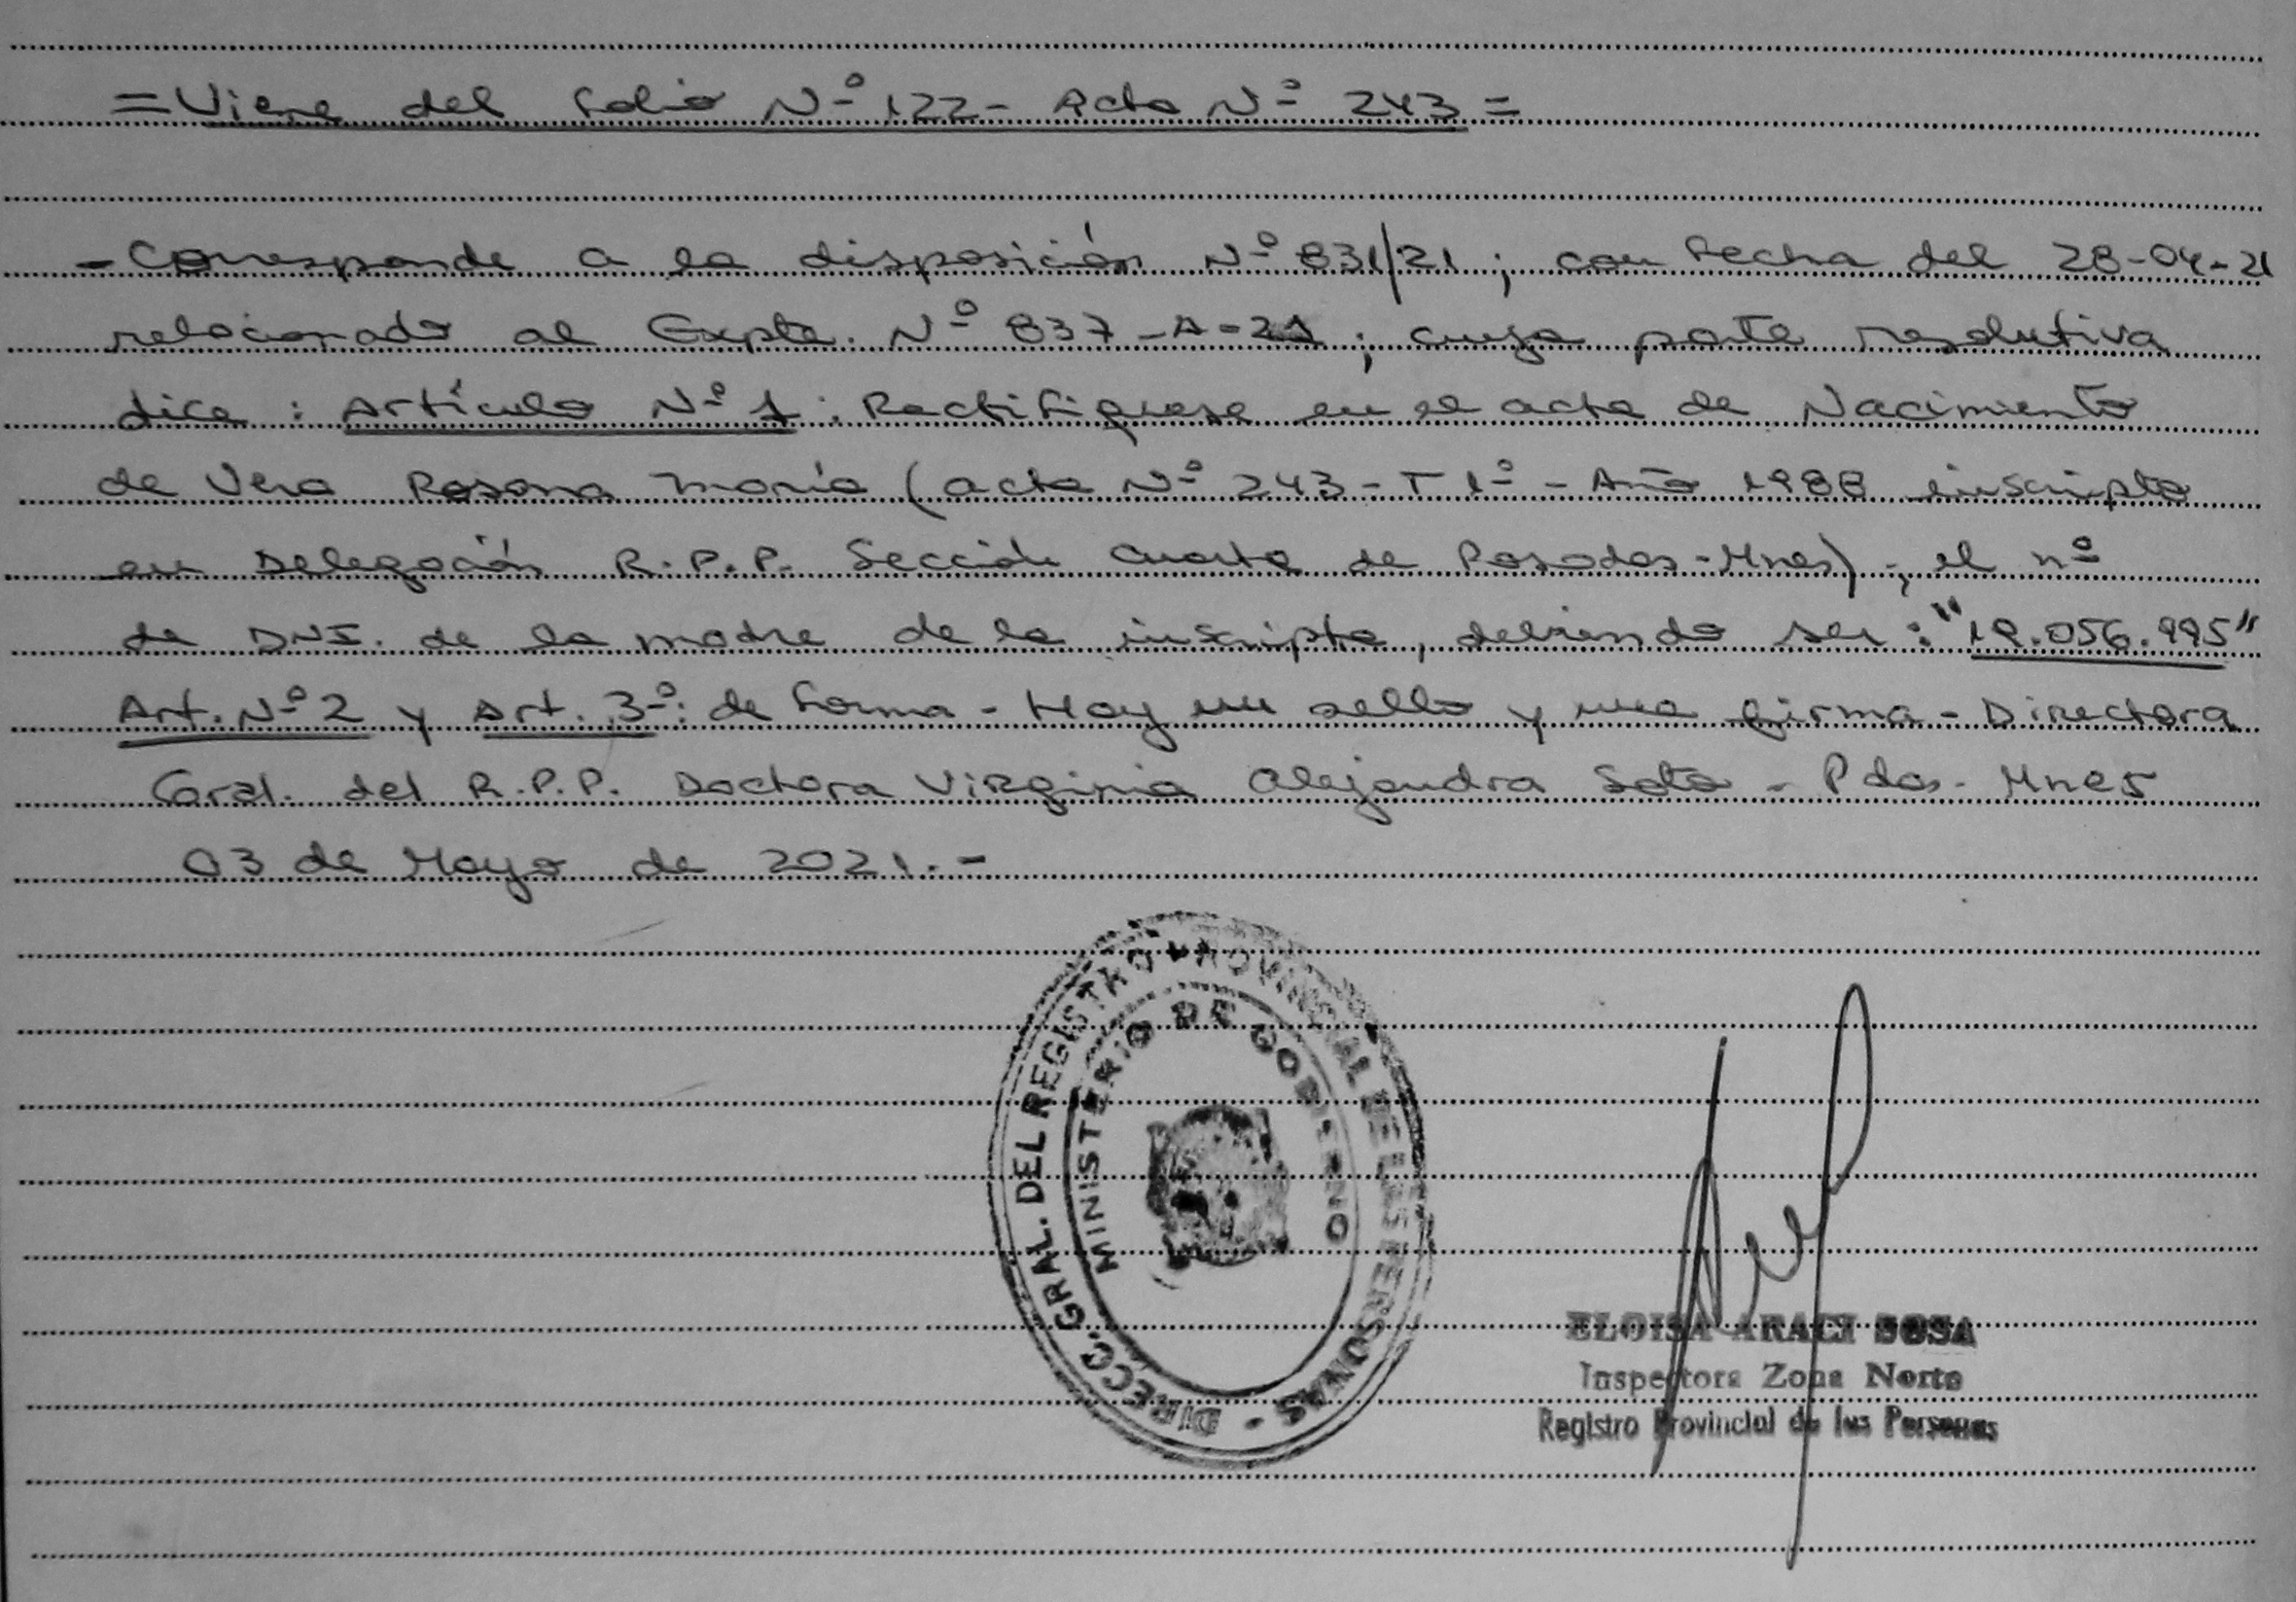 = Viene del folio Nº 122 - Acta Nº 243 =
- Corresponde a la disposición Nº 831/21 ; con fecha del 28-04-21
relacionado al Expte. Nº 837-A-21 ; cuya parte resolutiva
dice : Artículo Nº 1 : Rectifiquese en el acta de Nacimiento
de Vera Rosana María (acta Nº 243 - T 1º - Año 1988 inscripta
en Delegación R.P.P. Sección Cuarta de Posadas - Mnes) ; el nº
de DNI. de la madre de la inscripta, debiendo ser : "18.056.995"
Art. Nº 2 y Art. 3º: de forma - Hay un sello y una firma - Directora
Gral. del R.P.P. Doctora Virginia Alejandra Soto - Pdas - Mnes
03 de Mayo de 2021. -
DIRECC. GRAL. DEL REGISTRO PROVINCIAL DE LAS PERSONAS -
MINISTERIO DE GOBIERNO
ELOISA ARACI SOSA
Inspectora Zona Norte
Registro Provincial de las Personas